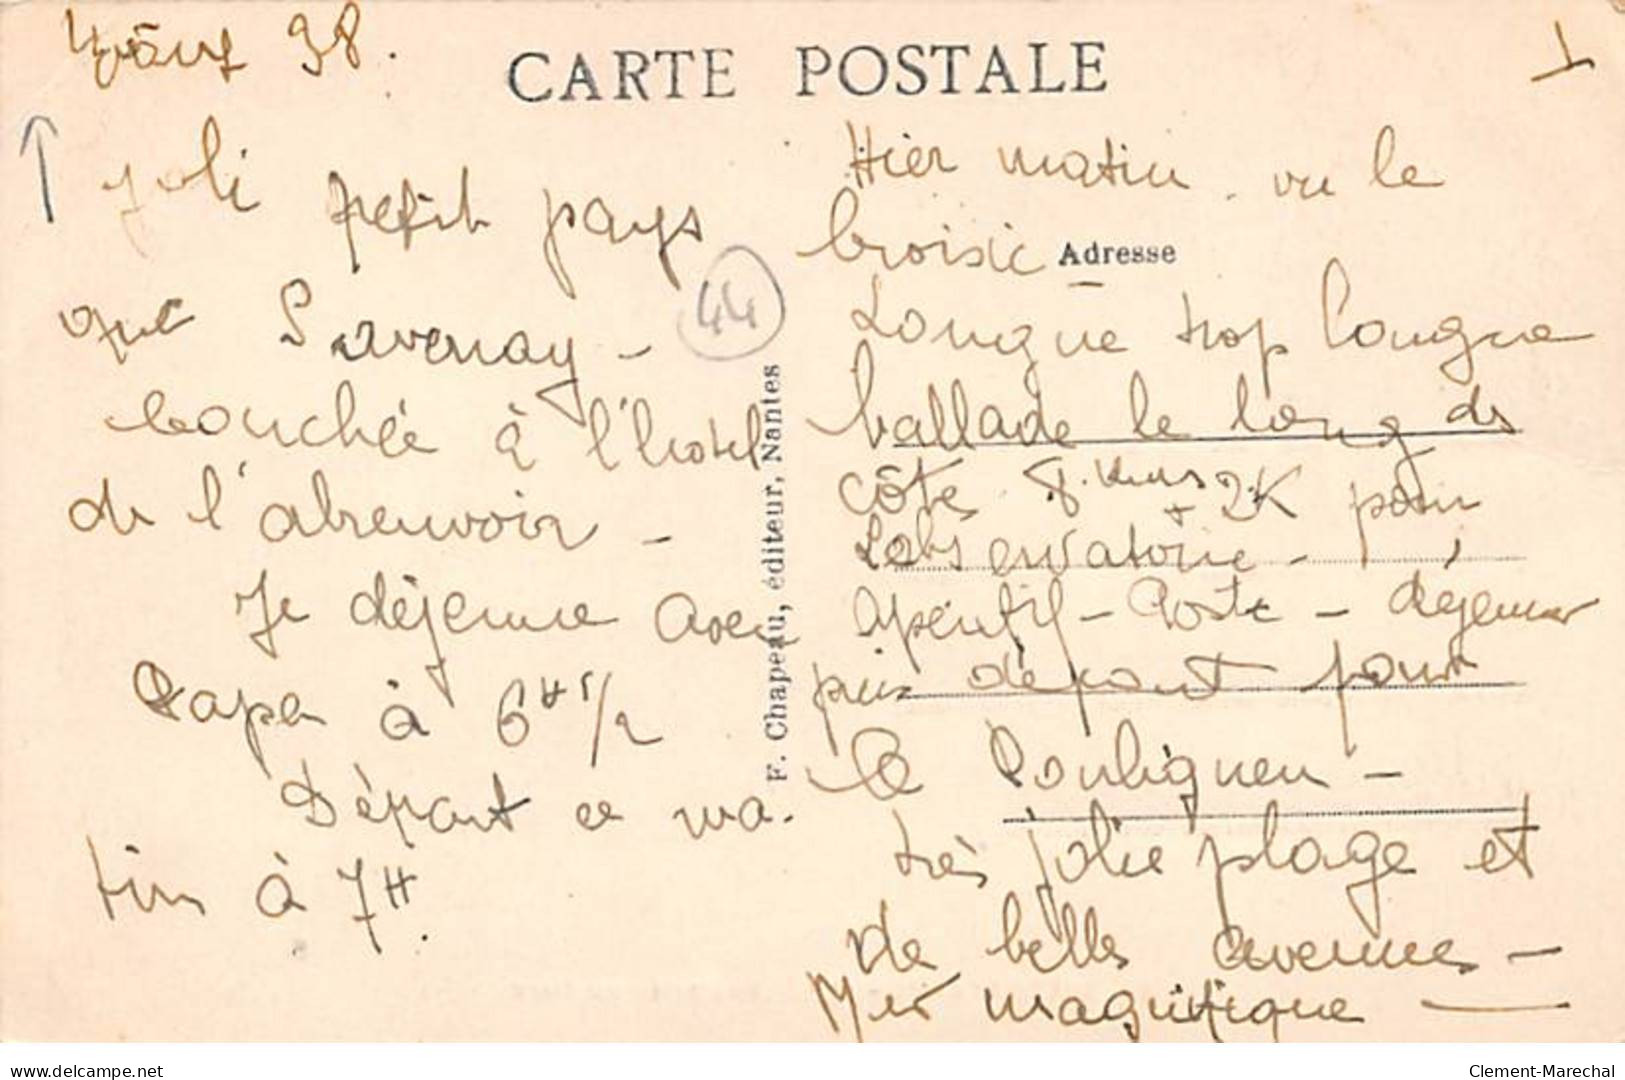 Août 38.
CARTE POSTALE
Joli petit pays
que Savenay -
couchée à l'hotel
de l'abreuvoir -
Je déjeune avec
Papa à 6 H 1/2
Départ ce ma-
tin à 7 H.
44
F. Chapeau, éditeur, Nantes
Hier matin vu le
Croisic
Adresse
Longue trop longue
ballade le long de
côte + 2K pour
Lobservatoire -
apéritif - Poste - déjeuner
puis départ pour
le Pouliguen -
très jolie plage et
de belles avenues -
Mer magnifique
delcampe.net
Clement-Marechal